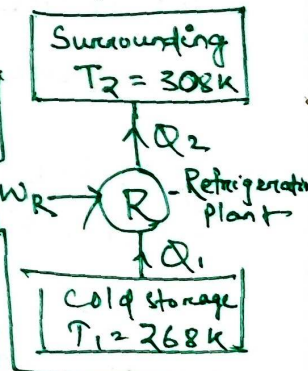 Surrounding
T₂ = 308K
Q₂
W_R
R
Refrigeration
plant
Q₁
Cold storage
T₁ = 268K